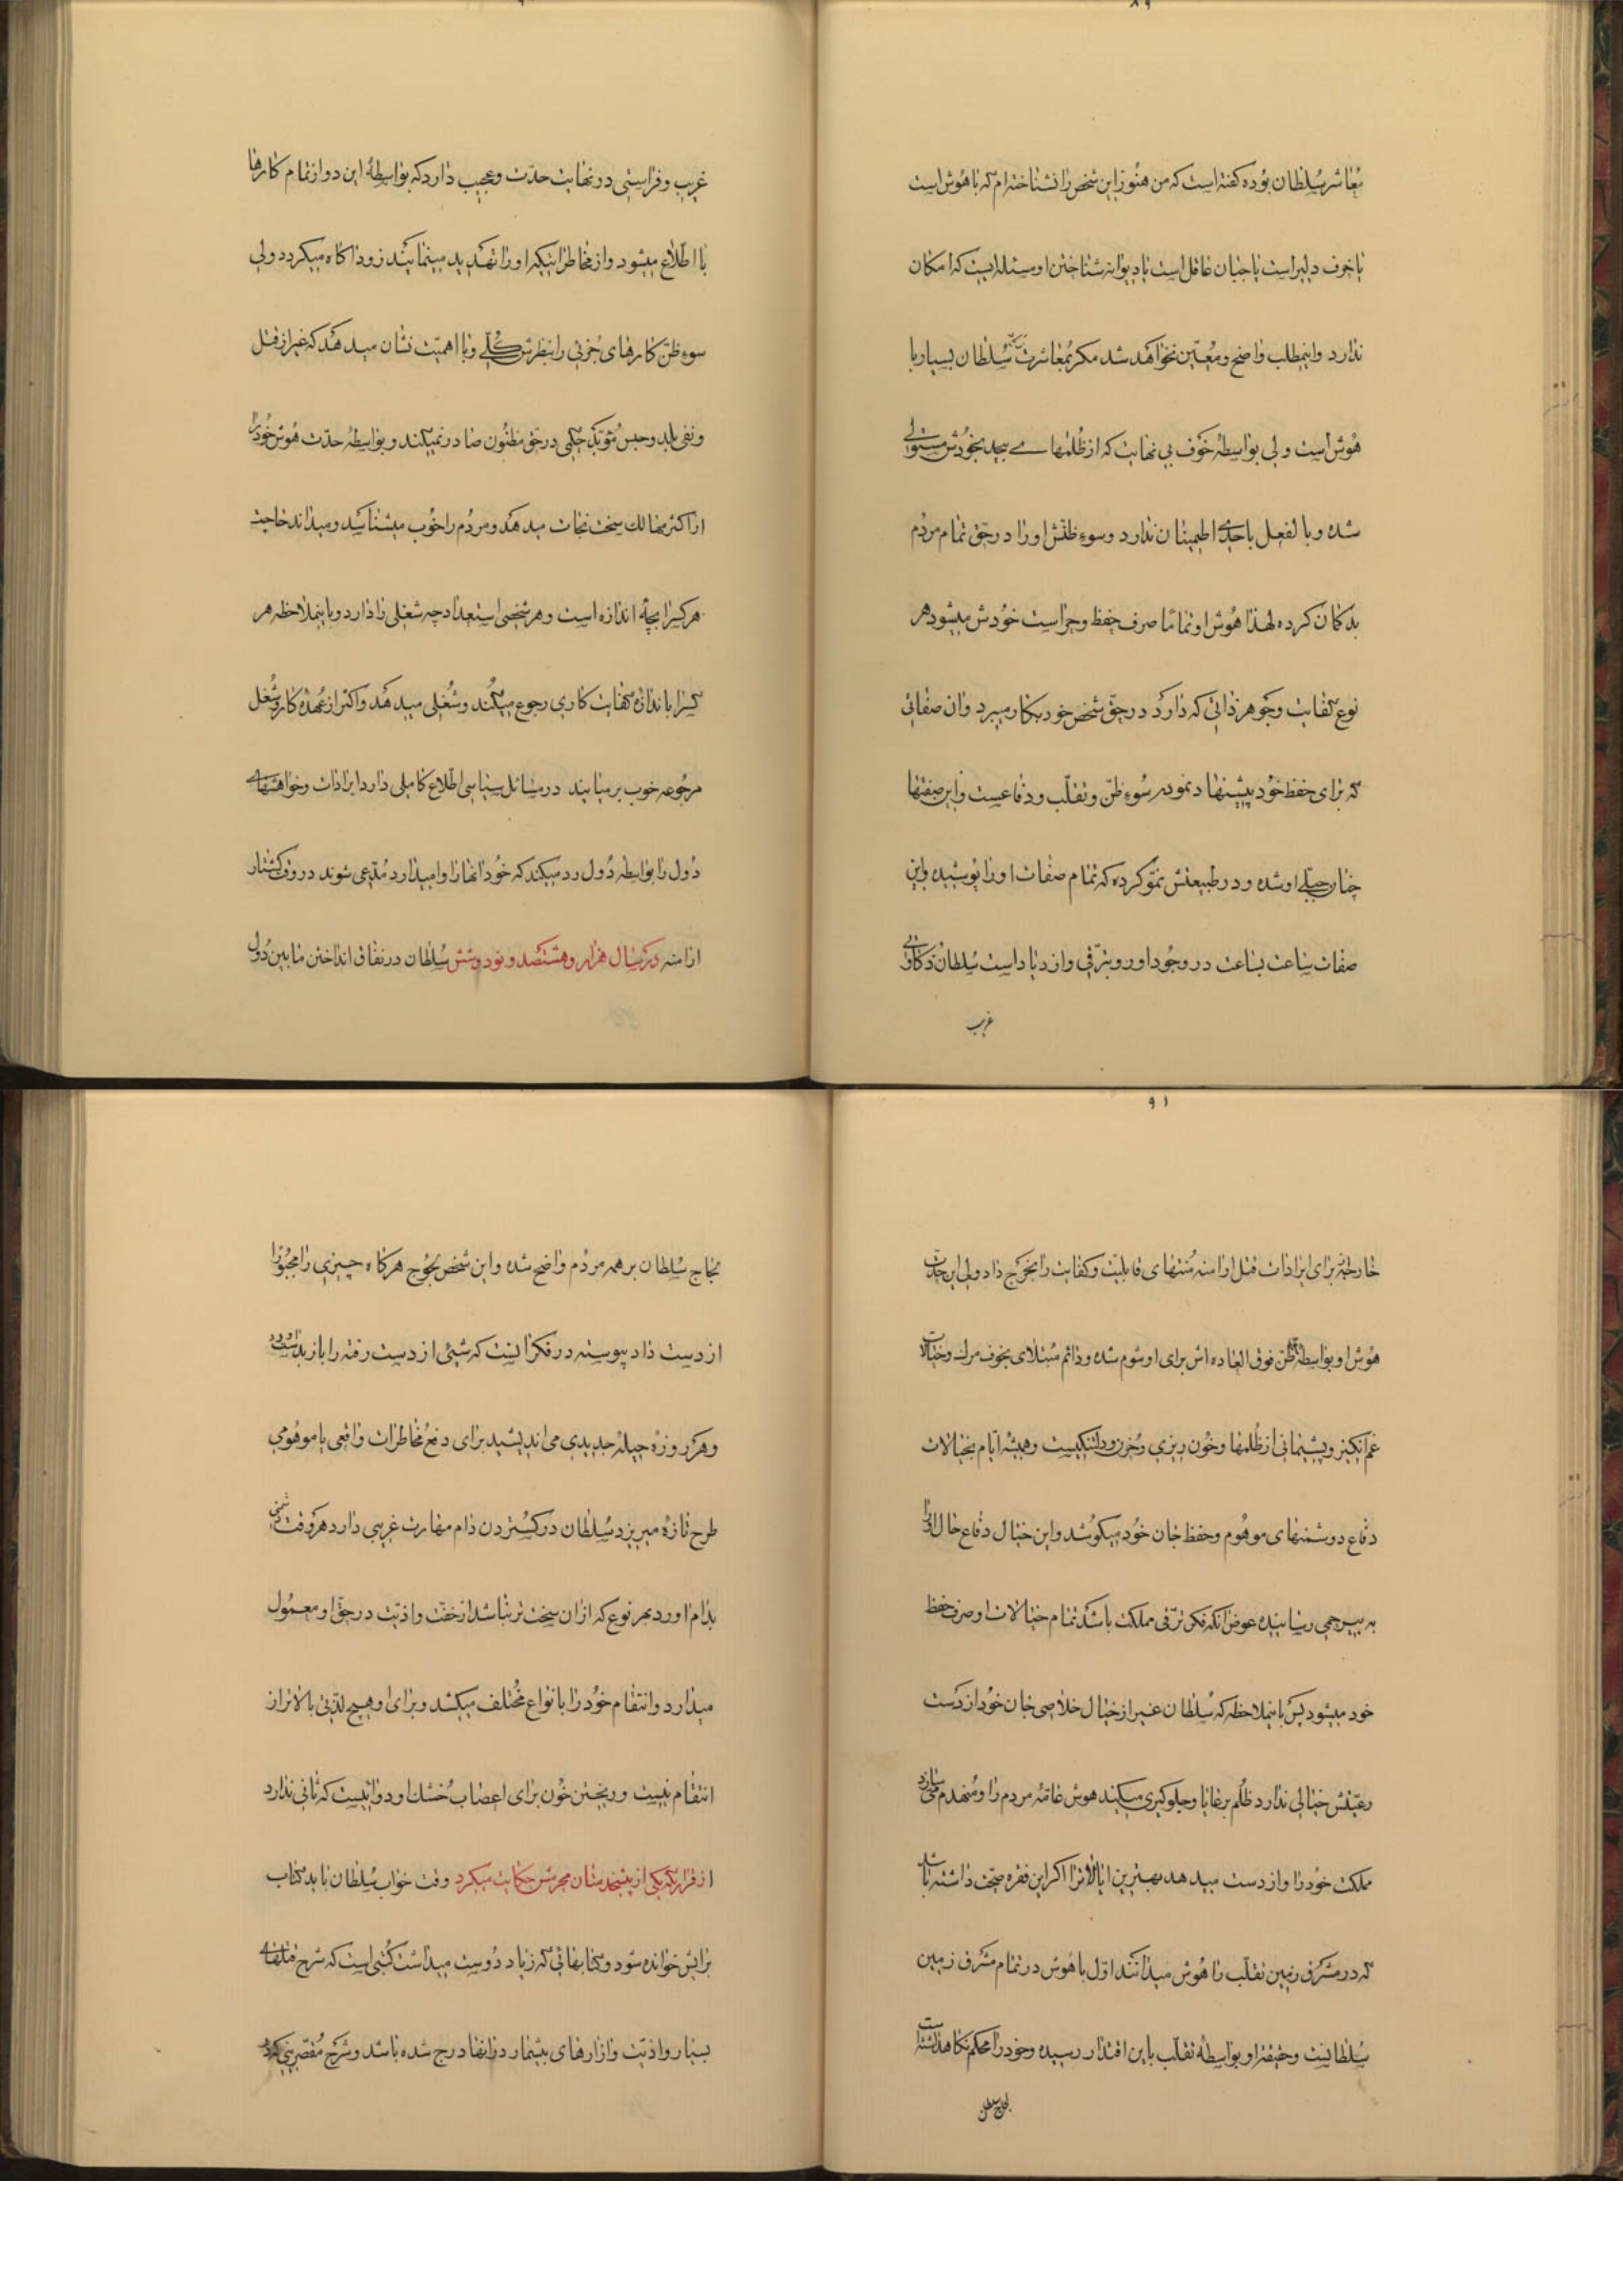 ۸۹
معاشر سلطان بوده گفته است که من هنوز این شخص را نشناخته‌ام که با هوش است
یا خرف دلیر است یا جبان عاقل است یا دیوانه شناختن او مسئله ایست که امکان
ندارد و اینمطلب واضح و معین نخواهد شد مگر بمعاشرت سلطان بسیار با
هوش است ولی بواسطه خوف بی نهایت که از ظلمهای بیحد بخودش مستولی
شده و بالفعل باحدی اطمینان ندارد و سوء ظنش او را در حق تمام مردم
بدگمان کرده لهذا هوش او تماما صرف حفظ و حراست خودش میشود هر
نوع کفایت و جوهر ذاتی که دارد در حق شخص خود بکار میبرد و آن صفاتی
که برای حفظ خود پیشنهاد نموده سوء ظن و تقلب و دفاعست و این صفتها
چنان جبلی او شده و در طبیعتش نمو کرده که تمام صفات او را پوشیده و این
صفات ساعت بساعت در وجود او رو بترقی و ازدیاد است سلطان ذکاوتی
غریب
غریب و فراستی در نهایت حدت و عجیب دارد که بواسطهٔ این دو از تمام کارها
با اطلاع میشود و از مخاطراتیکه او را تهدید مینمایند زود آگاه میگردد ولی
سوء ظن کارهای جزئی را بنظرش کلی و با اهمیت نشان میدهد که غیر از قتل
و نفی بلد و حبس مؤبد حکمی در حق مظنون صادر نمیکند و بواسطه حدت هوش خود را
از اکثر مهالک سخت نجات میدهد و مردم را خوب میشناسد و میداند حاجت
هر کس را بچه اندازه است و هر شخصی استعداد چه شغلی را دارد و باینملاحظه هر
کس را باندازه کفایت کاری رجوع میکند و شغلی میدهد و اکثر از عهده کار و شغل
مرجوعه خوب برمیایند در مسائل سیاسی اطلاع کاملی دارد ایرادات و خواهشهای
دول را بواسطه دول رد میکند که خود آنها را وامیدارد مدعی شوند در وقت کشتار
ارامنه در سال هزار و هشتصد و نود و شش سلطان در نفاق انداختن مابین دول
۹۱
خارجه برای ایرادات قتل ارامنه منتهای قابلیت و کفایت را بخرج داد ولی این حدت
هوش او بواسطه ظن فوق العاده اش برای او شوم شده و دائم مبتلای بخوف مرگ و خیالات
غم انگیز و پشیمانی از ظلمها و خون ریزی و حزن و دلتنگیست و همیشه ایام بخیالات
دفاع دوشمنهای موهوم و حفظ جان خود میکوشد و این خیال دفاع حال او را
به بیرحمی رسانیده عوض آنکه فکر ترقی مملکت باشد تمام خیالات او صرف حفظ
خود میشود پس باینملاحظه که سلطان غیر از خیال خلاصی جان خود از دست
رعیتش خیالی ندارد ظلم برعایا و جلوگیری میکند هوش عامه مردم را و منهدم میسازد
ملکت خود را و از دست میدهد بهترین ایالاترا اگر این فقره صحت داشته باشد
که در مشرق زمین تقلب را هوش میدانند اول باهوش در تمام مشرق زمین
سلطانست و حقیقة او بواسطهٔ تقلب باین اقتدار رسیده و خود را محکم نگاهداشته است
لجاج سلطان
لجاج سلطان بر همه مردم واضح شده و این شخص لجوج هر گاه چیزی را مجبورا
از دست داد پیوسته در فکر اینست که شیئی از دست رفته را باز بدست آورد
و هر روزه حیله جدیدی می اندیشید برای دفع مخاطرات واقعی یا موهومی
طرح تازه میریزد سلطان در گستردن دام مهارت غریبی دارد هر وقت دشمنی
بدام آورد بهر نوع که از آن سخت تر نباشد از خفت و اذیت در حق او معمول
میدارد و انتقام خود را بانواع مختلف میکشد و برای او هیچ لذتی بالاتر از
انتقام نیست و ریختن خون برای اعصاب خشک او دوائیست که ثانی ندارد
از قراریکه یکی از پیشخدمتان محرمش حکایت میکرد وقت خواب سلطان باید کتاب
برایش خوانده شود و کتابهائی که زیاد دوست میداشت کتبی است که شرح قتلهای
بسیار و اذیت و آزارهای بیشمار در آنها درج شده باشد و شرح مقصرینی که